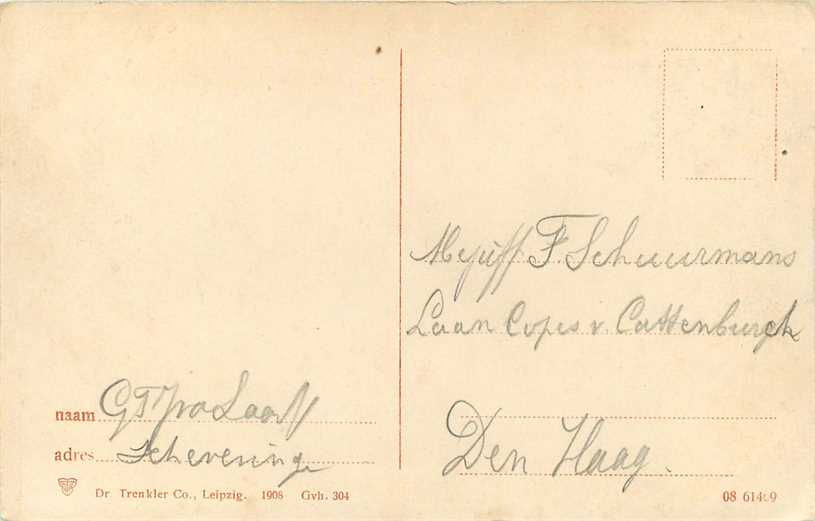 Mejuff F. Schuurmans
Laan Copes v. Cattenburgh
Den Haag.
naam
adres Schevening
Dr Trenkler Co., Leipzig. 1908 Gvh. 304
08 61469